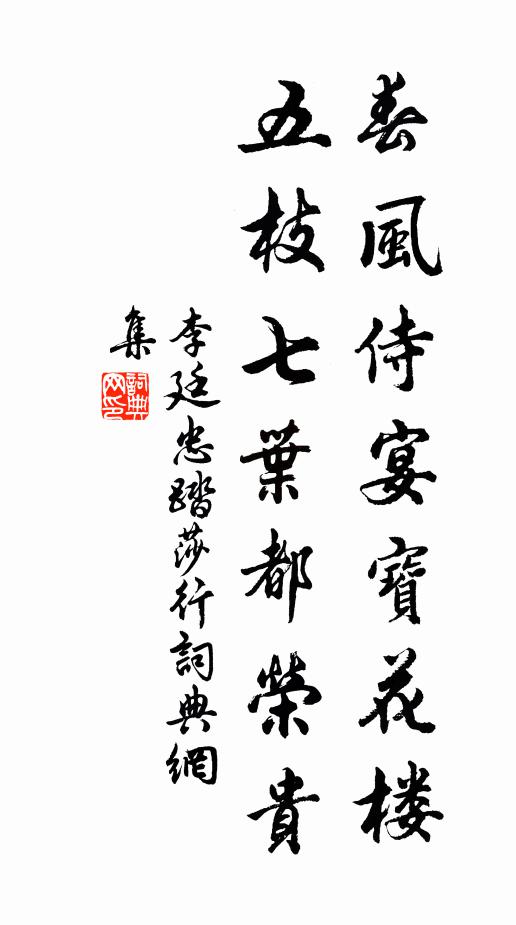 春風侍宴寶花楼
五枝七葉都榮貴
李廷忠踏莎行詞典網
集
詞典網印